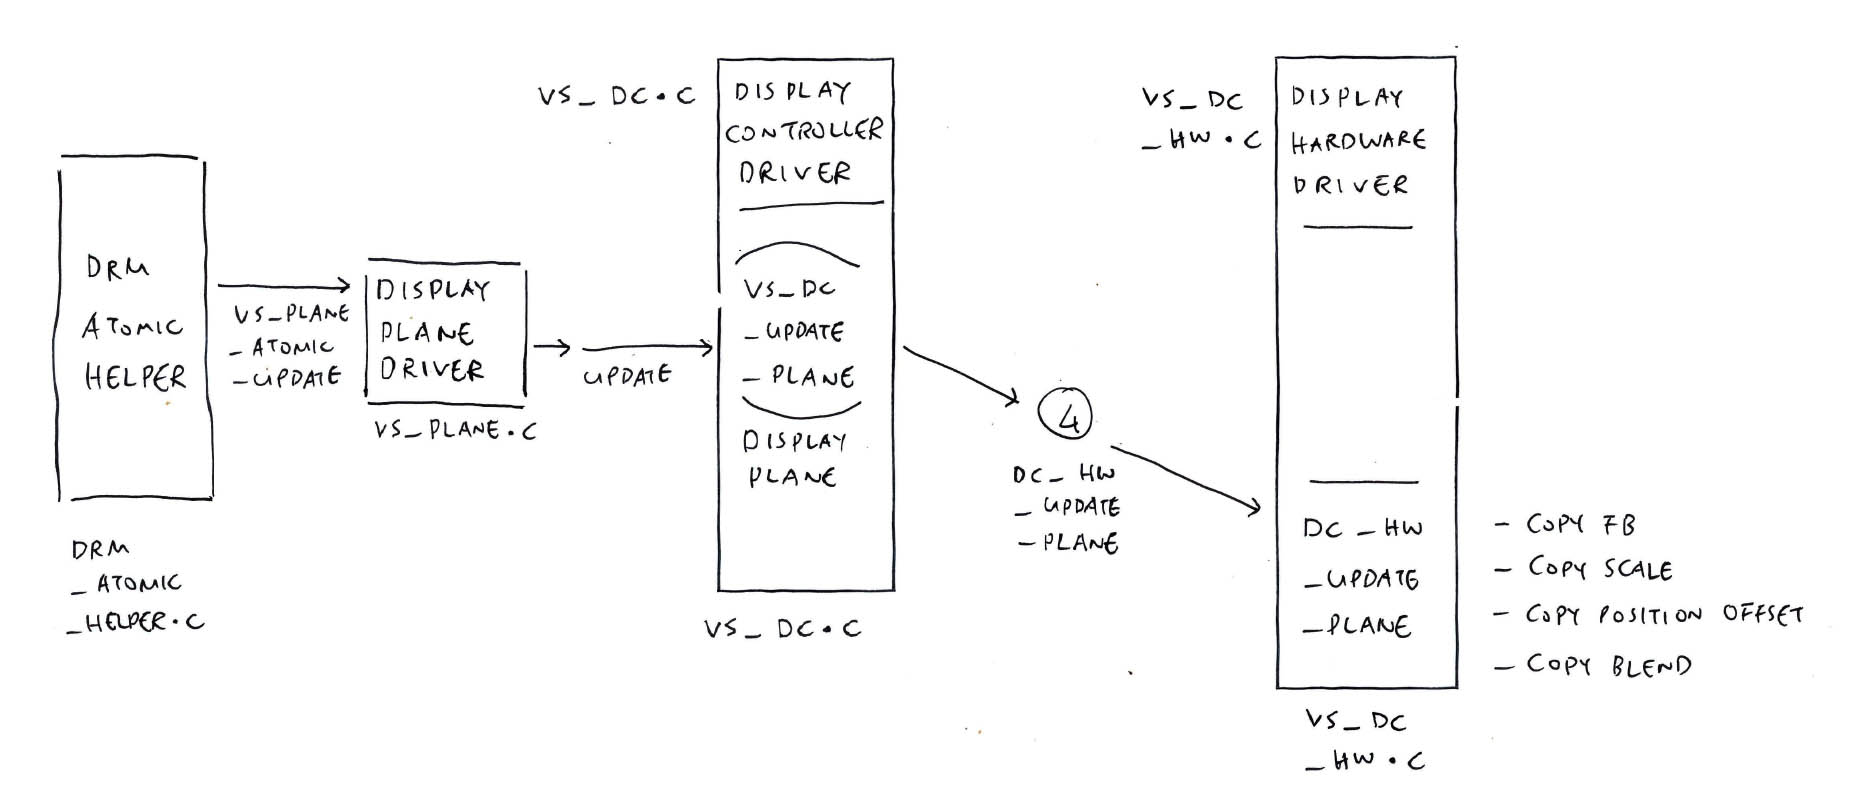 DRM
ATOMIC
HELPER
DRM
_ ATOMIC
_HELPER.C
VS_PLANE
_ ATOMIC
_UPDATE
DISPLAY
PLANE
DRIVER
VS_PLANE.C
UPDATE
VS_ DC.C
DISPLAY
CONTROLLER
DRIVER
VS_DC
_UPDATE
_ PLANE
DISPLAY
PLANE
VS_ DC.C
4
DC_ HW
_ UPDATE
_PLANE
VS_ DC
_ HW.C
DISPLAY
HARDWARE
DRIVER
DC_HW
_UPDATE
_PLANE
- COPY FB
- COPY SCALE
- COPY POSITION OFFSET
- COPY BLEND
VS_ DC
_ HW.C